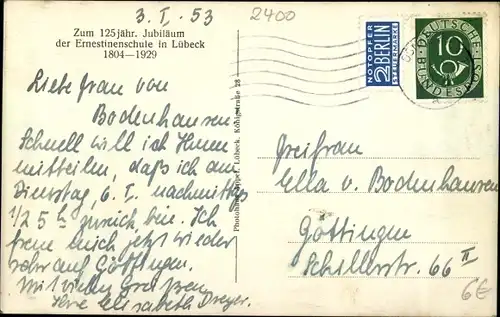 3. I. 53
2400
Zum 125jähr. Jubiläum
der Ernestinenschule in Lübeck
1804—1929
Liebe Frau von
Bodenhausen
Schnell will ich Ihnen
mitteilen, daß ich am
Dienstag, 6. I. nachmittag
1/2 5 h zurück bin. Ich
freue mich jetzt wieder
sehr auf Göttingen.
Mit vielen Grüßen
Ihre Elisabeth Dreyer.
Lübeck, Königstraße 28
NOTOPFER
2 BERLIN
STEUERMARKE
DEUTSCHE
BUNDESPOST
10
Freifrau
Ella v. Bodenhausen
Göttingen
Schillerstr. 66 II
6€